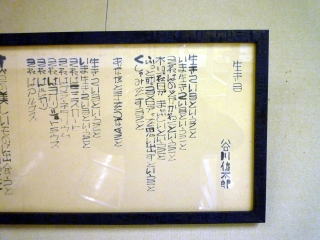 生きる
谷川俊太郎
生きているということ
いま生きているということ
それはのどがかわくということ
木もれ陽がまぶしいということ
ふっと或るメロディを思い出すということ
くしゃみをすること
あなたと手をつなぐこと
生きているということ
いま生きているということ
それはミニスカート
それはプラネタリウム
それはヨハン・シュトラウス
それはピカソ
それはアルプス
美しいものに出会うということ